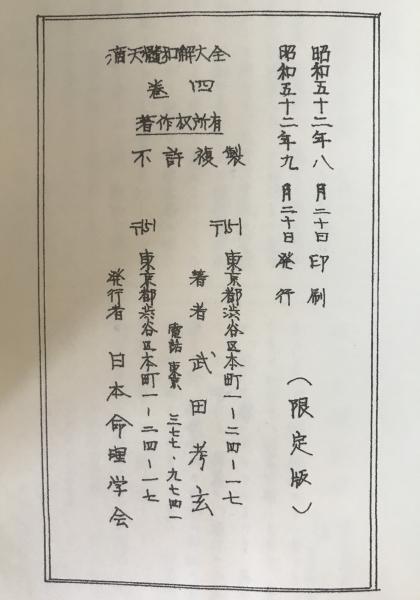 昭和五十二年八月二十日印刷
昭和五十二年九月二十日発行
(限定版)
滴天髓和解大全
巻四
著作权所有
不許複製
〒151 東京都渋谷区本町一ー二四ー一七
著者 武田考玄
電話 東京 三七七・九七四一
〒151 東京都渋谷区本町一ー二四ー一七
発行者 日本命理学会